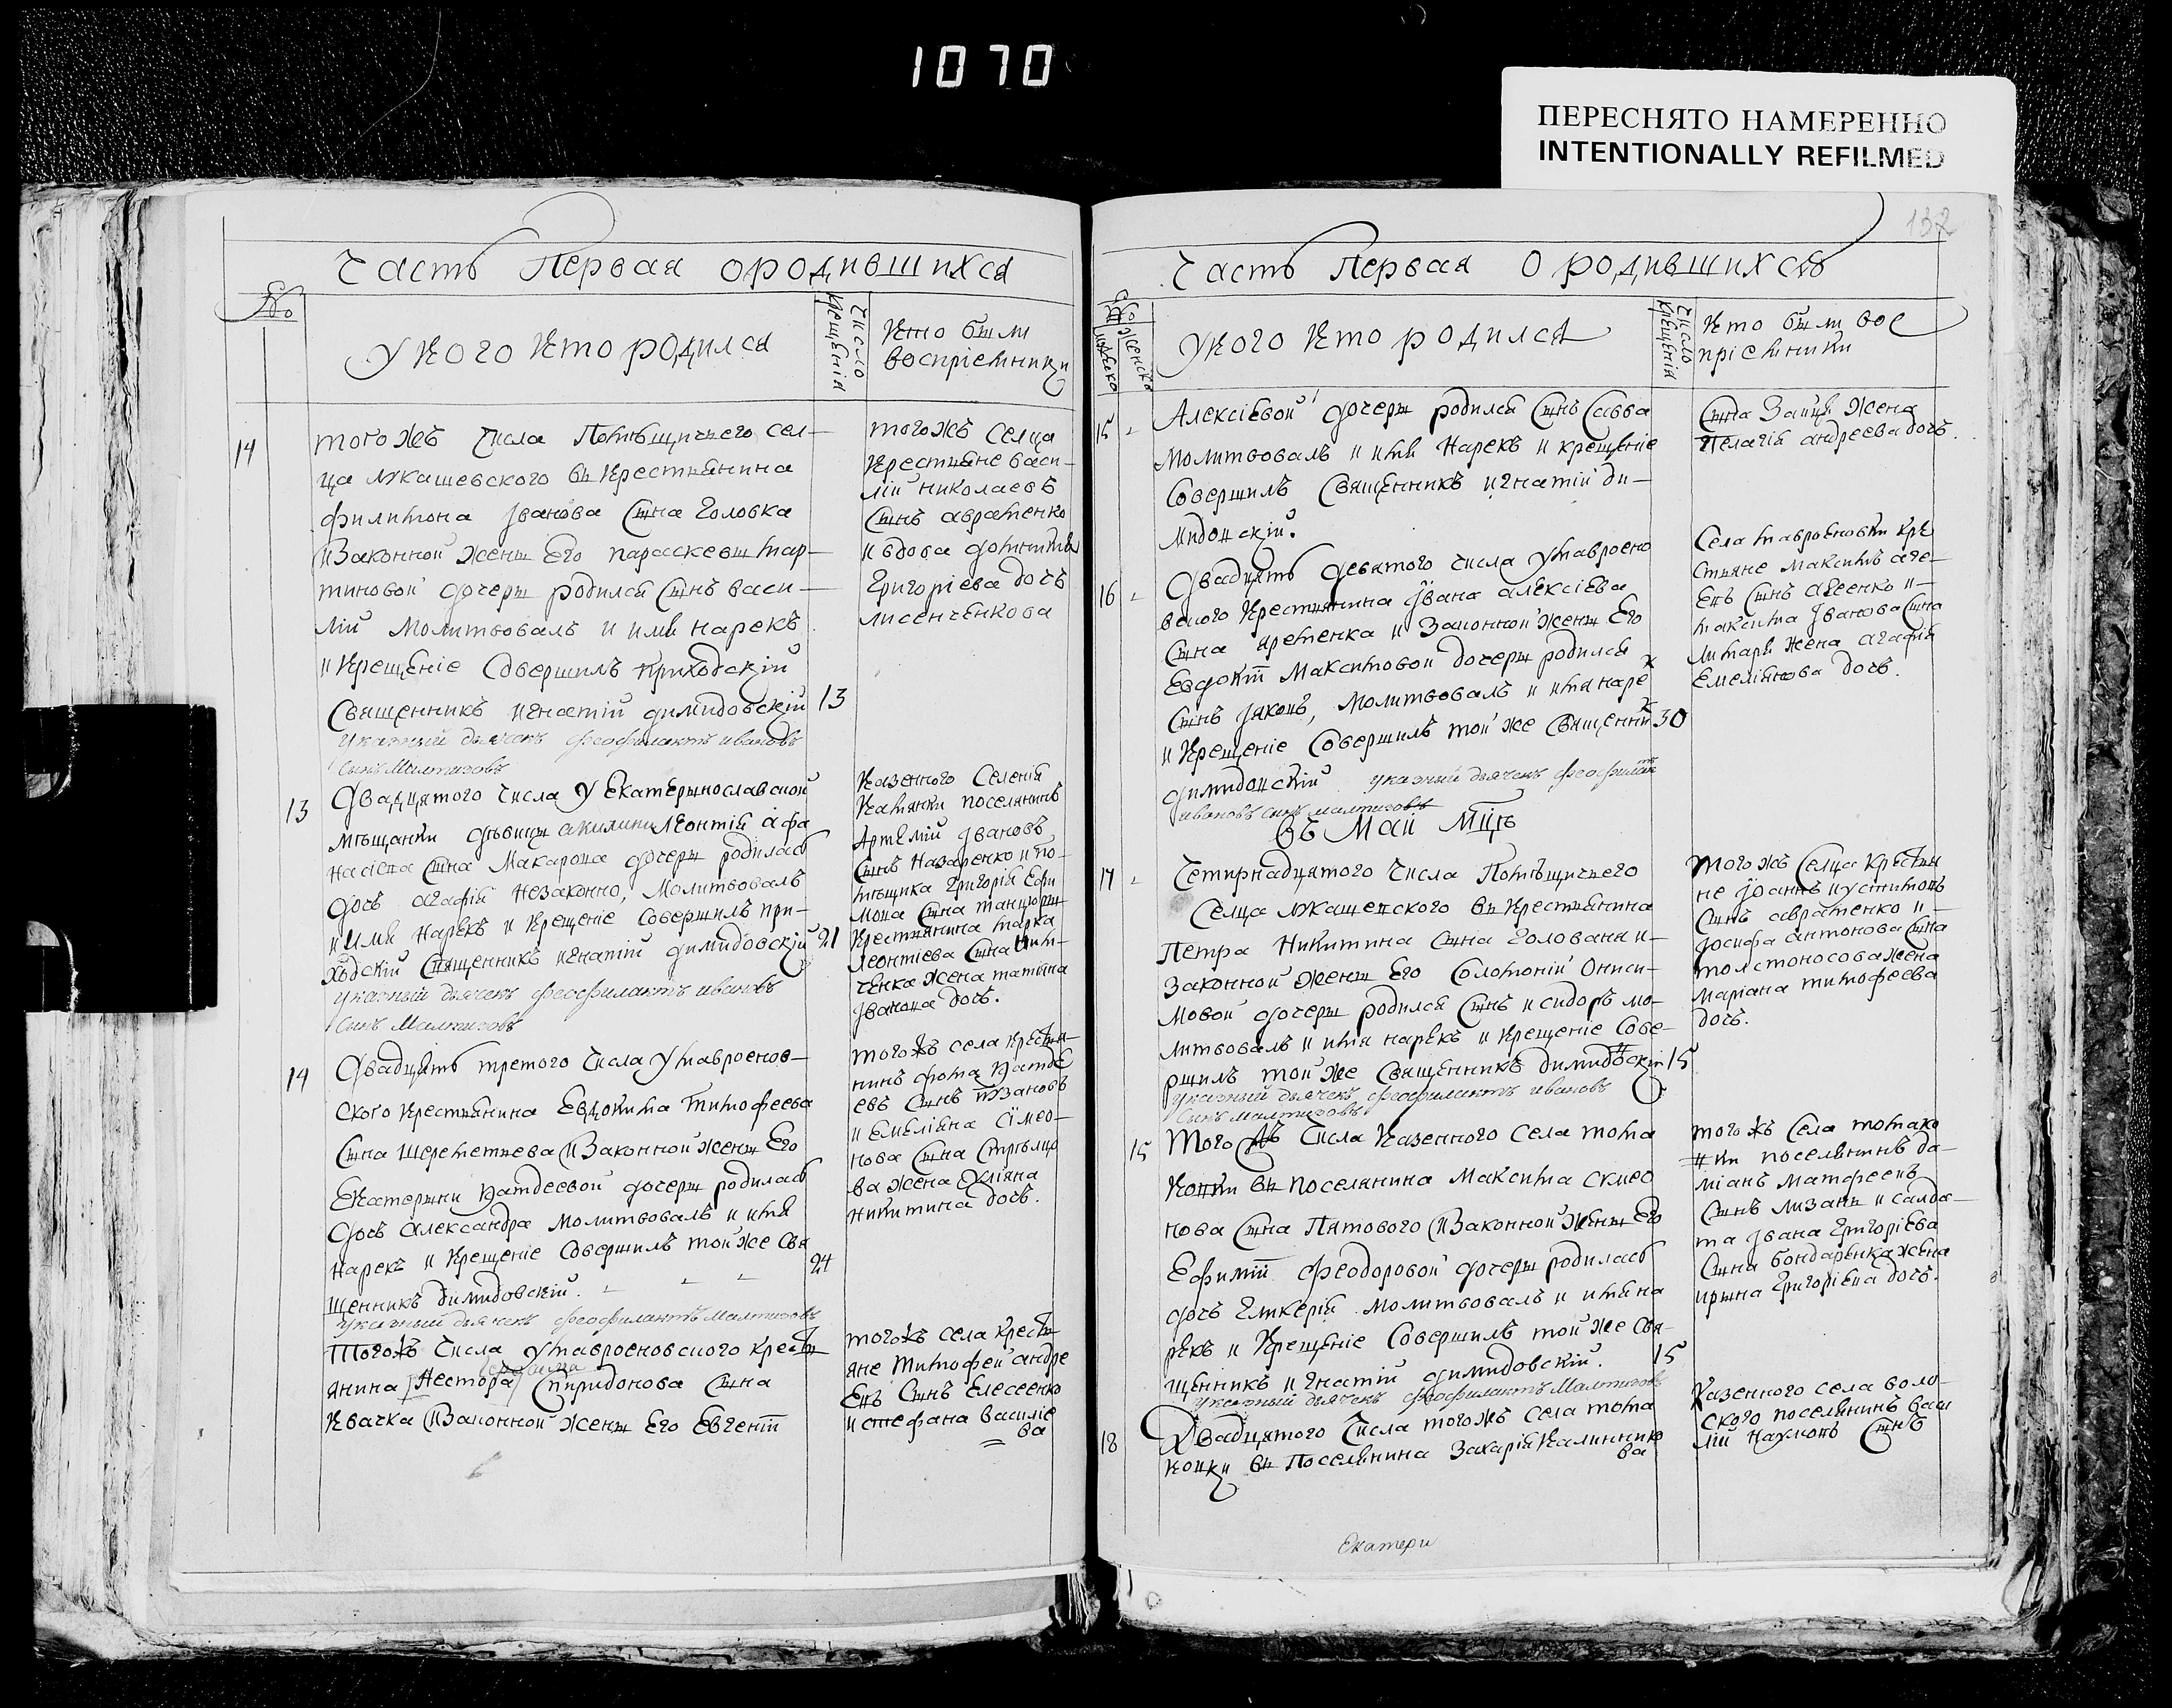 1070
ПЕРЕСНЯТО НАМЕРЕННО
INTENTIONALLY REFILMED
Часть Первая ородившихся
№
У кого кто родился
число крещенія
кто были
воспріемники
14
того жъ числа Помѣщичьего сел-
ца Лукашевского вѣ Крестьянина
филимона Іванова сына Головка
и Законной жены Его параскевы мар-
тиновой дочеры родился сынъ васи-
лій Молитвовалъ и имя нарекъ
и Крещеніе Совершилъ приходскій
Священникъ игнатій димидовскій 13
указный дьячекъ феофилактъ ивановъ
сынъ Малтизовъ
того жъ селца
Крестьяне васи-
лій николаевъ
сынъ авраменко
и вдова домникия
Григоріева дочь
лисенченкова
13
Двадцятого числа У Екатеринославской
мѣщанки дѣвицы акилини Леонтія афа
насіева сына Макарова дочеры родилась
дочь агафія незаконно, Молитвовалъ
и имя нарекъ и Крещеніе Совершилъ при-
ходскій Священникъ игнатій димидовскій 21
указный дьячекъ феофилактъ ивановъ
сынъ Малтизовъ
Казенного Селенія
Каменки поселянинъ
Артемій Івановъ
сынъ Назаренко и по-
мѣщика Григорія Ефи
мова сына
Крестьянина марка
Леонтіева сына
ченка жена татіяна
Іванова дочь.
14
Двадцять третого числа У мавроенов-
ского Крестьянина Евдокима тимофеева
сына Шереметьева и Законной жены Его
Екатерины Фатдеевой дочеры родилась
дочь александра Молитвовалъ и имя
нарекъ и Крещеніе Совершилъ той же Свя
щенникъ димидовскій. 24
указный дьячекъ феофилактъ Малтизовъ
того жъ села крестья-
нинъ фома Фатдѣ
евъ сынъ
и Емеліяна сімео-
нова сына Стрѣлцо
ва жена Уліяна
никитина дочь.
Того жъ числа У мавроеновского крестья
янина Нестора Спиридонова сына
Квачка и Законной жены Его Евгеніи
того жъ села крестья
яне Тимофей андре
евъ сынъ Елесеенко
и стефана василіе
ва
Часть Первая О родившихся
132
№
мужеско
женско
У кого кто родился
число крещенія
кто были вос
пріемники
15
Алексіевой дочеры родился сынъ Савва
Молитвовалъ и имя нарекъ и крещеніе
Совершилъ Священникъ игнатій ди-
мидовскій.
сына Зайця жена
Пелагія андреева дочь.
16
Двадцять девятого числа У мавроено
вского Крестьянина Івана алексіева
сына яременка и Законной жены Его
Евдокіи Максимовой дочеры родился
сынъ Іяковъ, Молитвовалъ и имя наре
и Крещеніе Совершилъ той же Священни 30
димидовскій указный дьячекъ феофилактъ
ивановъ сынъ малтизовъ
Села мавроеновки кре
стьяне максимъ аге-
евъ сынъ агеенко и-
максима Іванова сына
литаря жена агафія
Емеліянова дочь.
Въ Маіи Мцѣ
17
Четирнадцятого числа Помѣщичьего
Селца Лукашевского вѣ Крестьянина
Петра Никитина сына Голована и-
Законной жены Его Соломоніи Ониси-
мовой дочеры родился сынъ исидоръ мо-
литвовалъ и имя нарекъ и Крещеніе Сове-
ршилъ той же Священникъ димидовскій 15
указный дьячекъ феофилактъ ивановъ
сынъ малтизовъ
того жъ Селца крестья
не Іоаннъ іустимовъ
сынъ авраменко и-
Іосифа антонова сына
толстоносова жена
Маріана тимофеева
дочь.
15
Того жъ числа Казенного Села тома
ковки вѣ поселянина Максима Симео
нова сына Пятового и Законной жены Его
Ефиміи феодоровой дочеры родилась
дочь Гликерія Молитвовалъ и имя на
рекъ и Крещеніе Совершилъ той же Свя-
щенникъ игнатій димидовскій. 15
указный дьячекъ феофилактъ Малтизовъ
того жъ Села томако
вки поселянинъ да-
міанъ матфеевъ
сынъ лизанъ и салда-
та Івана Григоріева
сына бондаренка жена
ирына Григоріева дочь.
18
Двадцятого числа того жъ села тома
ковки вѣ Поселянина Захарія Калиннико
ва
Казенного села воло-
ского поселянинъ васи
лій Наумовъ сынъ
Екатери